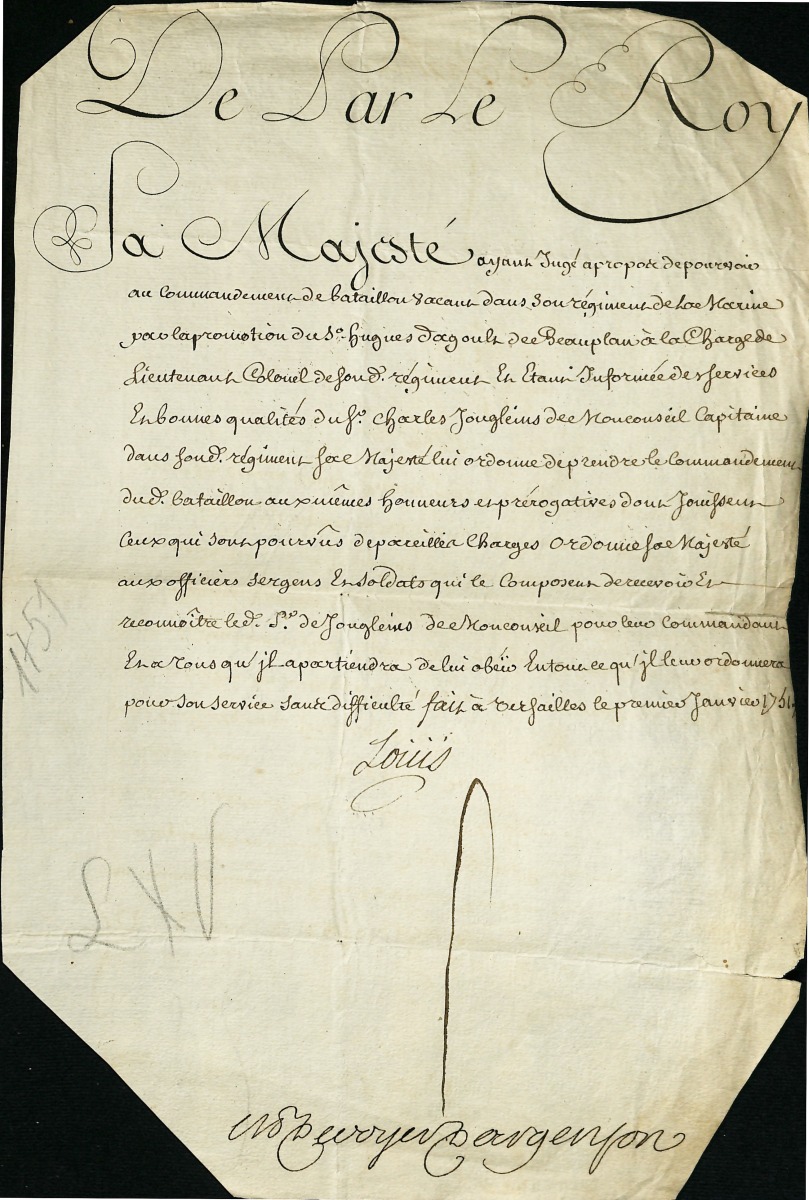 De Par Le Roy
Sa Majesté ayant Jugé apropos de pourvoir
au Commandement de bataillon vacant dans son régiment de La Marine
par la promotion du Sr. hugues d'agoult de Beauplan à la Charge de
Lieutenant Colonel de sond. régiment Et Etant Informée des services
Et bonnes qualités du Sr. Charles Jougleins de Monconseil Capitaine
dans sond. régiment sa Majesté lui ordonne de prendre le Commandement
dud. bataillon aux mêmes honneurs et prérogatives dont Jouissent
Ceux qui sont pourvûs de pareilles Charges ordonne sa Majesté
aux officiers sergens Et soldats qui le Composent de recevoir Et
reconnoître led. Sr. de Jougleins de Monconseil pour leur Commandant
Et a tous qu'jl apartiendra de lui obéir En tout ce qu'jl leur ordonnera
pour son service sans difficulté fait à Versailles le premier Janvier 1751.
Louis
1751
LXV
M P de voyer d'argenson